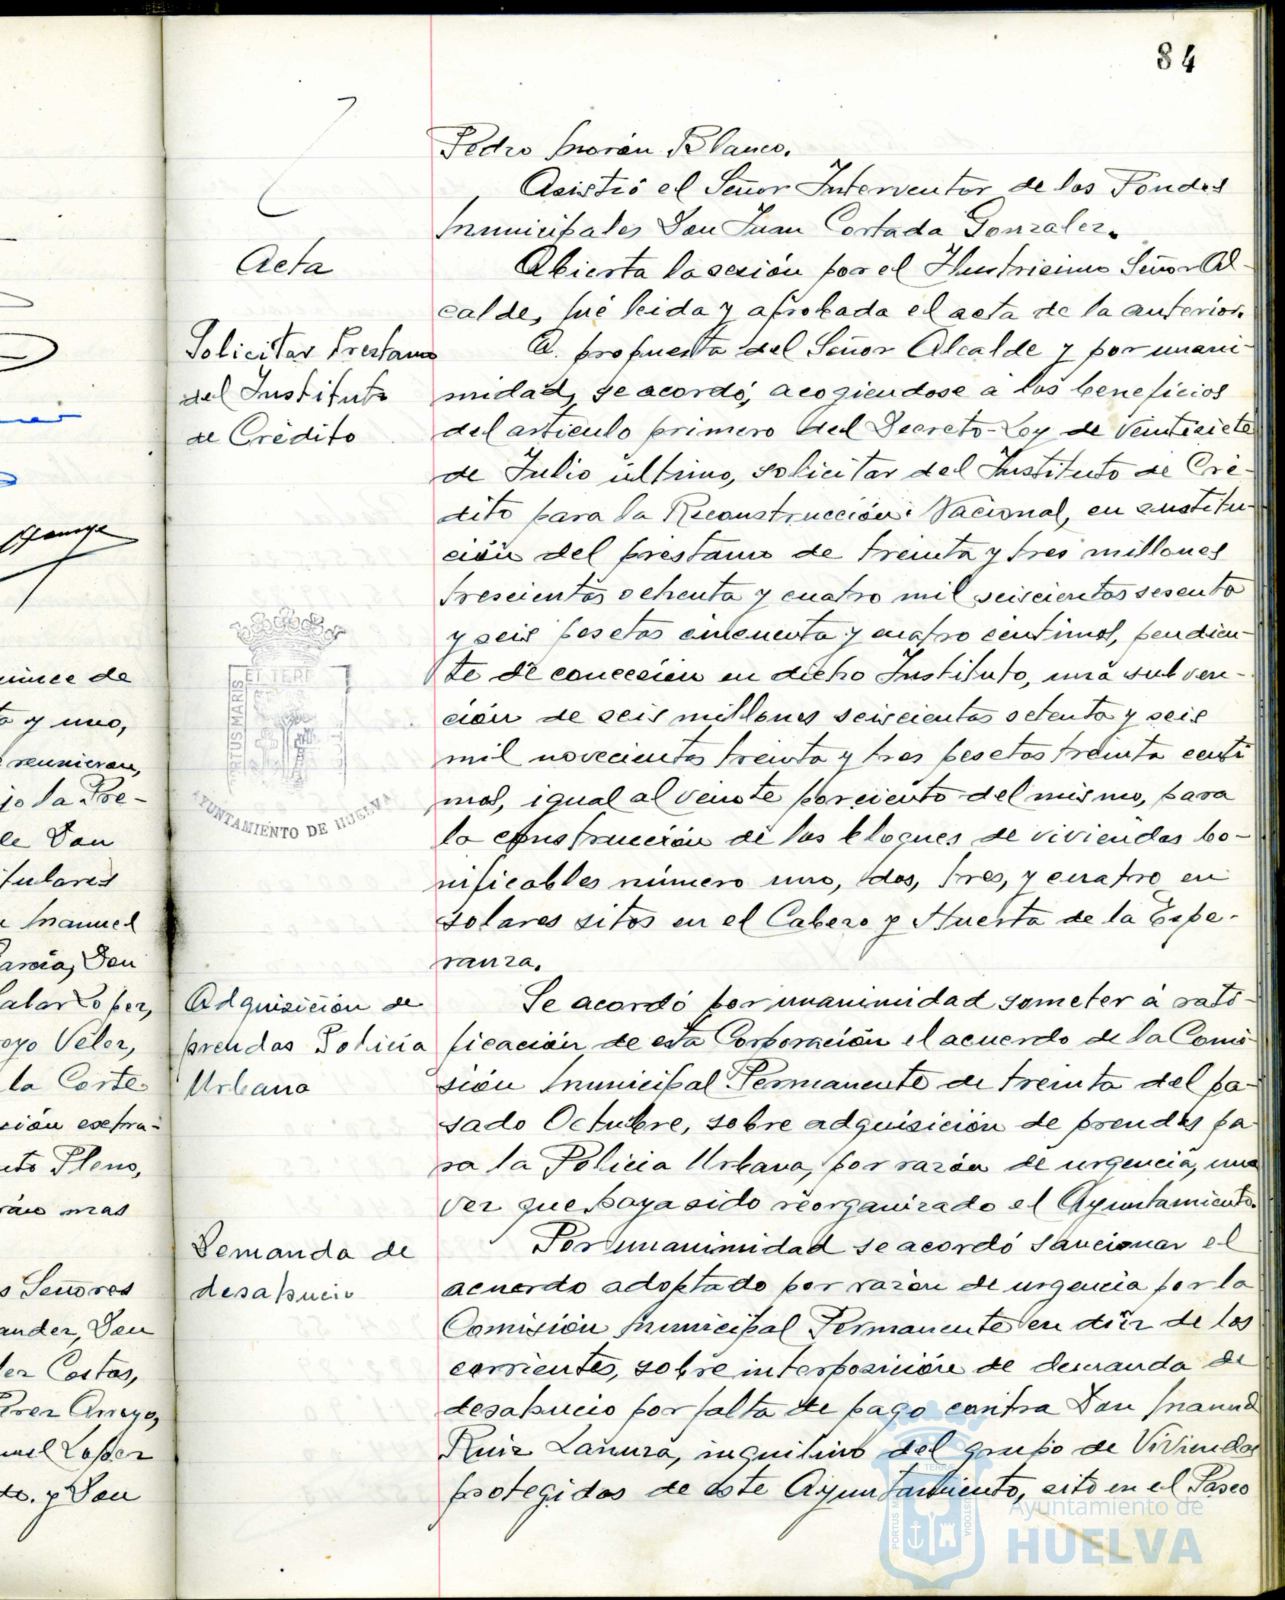 84
Pedro Morón Blanco.
Asistió el Señor Interventor de los Fondos
Municipales Don Juan Cortada Gonzalez.
Acta
Abierta la sesión por el Ilustrisimo Señor Al-
calde, fué leida y aprobada el acta de la anterior.
Solicitar Prestamo
del Instituto
de Crédito
A propuesta del Señor Alcalde y por unani-
midad, se acordó, acogiendose á los beneficios
del artículo primero del Decreto-Ley de veintisiete
de Julio último, solicitar del Instituto de Cré-
dito para la Reconstrucción Nacional, en sustitu-
ción del préstamo de treinta y tres millones
trescientas ochenta y cuatro mil seiscientas sesenta
y seis pesetas cincuenta y cuatro centimos, pendien-
te de concesión en dicho Instituto, una subven-
ción de seis millones seiscientas setenta y seis
mil novecientas treinta y tres pesetas treinta centi
mos, igual al veinte por ciento del mismo, para
la construcción de los bloques de viviendas bo-
nificables número uno, dos, tres, y cuatro en
solares sitos en el Cabezo y Huerta de la Espe-
ranza.
Adquisición de
prendas Policia
Urbana
Se acordó por unanimidad someter á rati-
ficación de esta Corporación el acuerdo de la Comi-
sión Municipal Permanente de treinta del pa-
sado Octubre, sobre adquisición de prendas pa-
ra la Policia Urbana, por razón de urgencia, una
vez que haya sido reorganizado el Ayuntamiento.
Demanda de
desahucio
Por unanimidad se acordó sancionar el
acuerdo adoptado por razón de urgencia por la
Comisión Municipal Permanente en diez de los
corrientes, sobre interposición de demanda de
desahucio por falta de pago contra Don Manuel
Ruiz Lanuza, inquilino del grupo de Viviendas
protegidas de este Ayuntamiento, sito en el Paseo
PORTUS MARIS
ET TERR
AYUNTAMIENTO DE HUELVA
quince de
ta y uno,
reunieron,
jo la Pre-
de Don
tulares
Manuel
García, Don
Lopez,
Velez,
la Corte
sión extra-
nto Pleno,
mas
s Señores
ander, Don
Costas,
Perez Arroyo,
uel Lopez
do. y Don
Ayuntamiento de
HUELVA